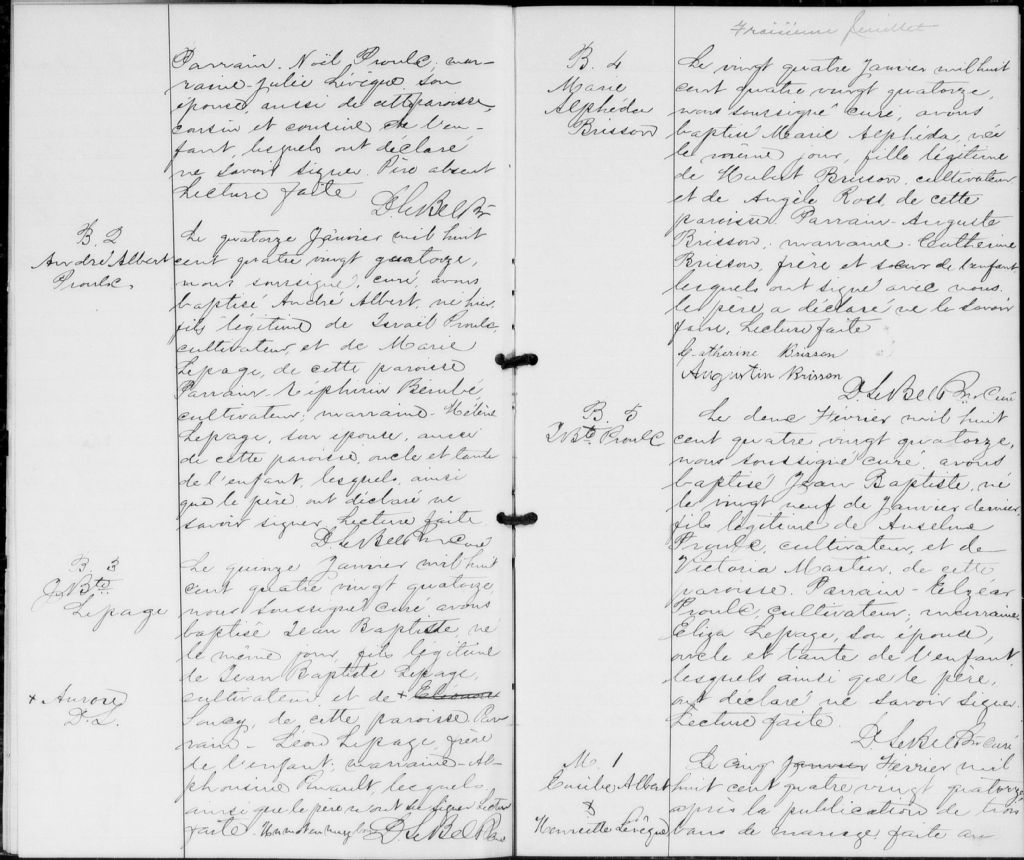 Parrain Noël Proulx; mar-
raine Julie Lévêque son
épouse, aussi de cette paroisse,
cousin et cousine de l'en-
fant, lesquels ont déclaré
ne savoir signer. Père absent
Lecture faite
D. LeBel Ptr
B. 2
André Albert
Proulx
Le quatorze Janvier mil huit
cent quatre vingt quatorze,
nous soussigné, curé, avons
baptisé André Albert, né hier,
fils légitime de Israël Proulx,
cultivateur, et de Marie
Lepage, de cette paroisse
Parrain Zéphirin Bérubé,
cultivateur; marraine Hélène
Lepage, son épouse, aussi
de cette paroisse, oncle et tante
de l'enfant, lesquels, ainsi
que le père ont déclaré ne
savoir signer. Lecture faite
D. LeBel Ptr Curé
B. 3
J. Bte
Lepage
Le quinze Janvier mil huit
cent quatre vingt quatorze,
nous soussigné curé avons
baptisé Jean Baptiste, né
le même jour, fils légitime
de Jean Baptiste Lepage,
cultivateur, et de + Eléonore
+ Aurore
D. L.
Soucy, de cette paroisse Par-
rain - Léon Lepage, frère
de l'enfant; marraine - Al-
phonsine Ruault, lesquels
ainsi que le père n'ont su signer Lecture
faite. Un mot en marge bon D. LeBel Ptr
Troisième feuillet
B. 4
Marie
Alphéda
Brisson
Le vingt quatre Janvier mil huit
cent quatre vingt quatorze,
nous soussigné curé, avons
baptisé Marie Alphéda, née
le même jour, fille légitime
de Hubert Brisson, cultivateur
et de Angèle Ross, de cette
paroisse. Parrain - Auguste
Brisson, marraine - Catherine
Brisson, frère et soeur de l'enfant
lesquels ont signé avec nous.
Le père a déclaré ne le savoir
faire, Lecture faite
Catherine Brisson
Augustin Brisson
D. LeBel Ptr Curé
B. 5
J. Bte Proulx
Le deux Février mil huit
cent quatre vingt quatorze,
nous soussigné curé, avons
baptisé Jean Baptiste, né
le vingt neuf de Janvier dernier,
fils légitime de Anselme
Proulx, cultivateur, et de
Victoria Martin, de cette
paroisse. Parrain - Elzéar
Proulx, cultivateur; marraine
Eliza Lepage, son épouse,
oncle et tante de l'enfant
lesquels ainsi que le père,
ont déclaré ne savoir signer.
Lecture faite.
D. LeBel Ptr Curé
M. 1
Eusèbe Albert
&
Henriette Lévêque
Le cinq Janvier Février mil
huit cent quatre vingt quatorze
après la publication de trois
bans de mariage faite au